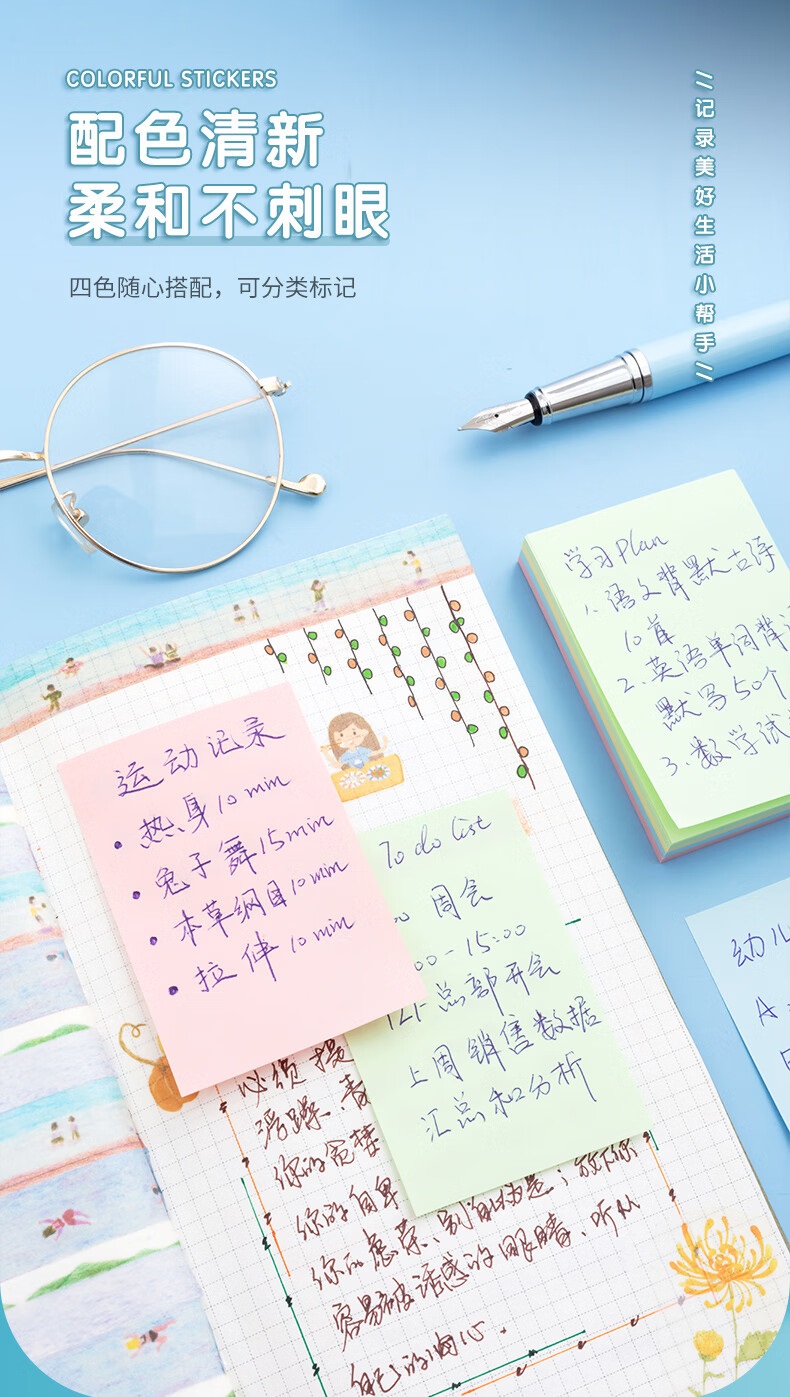 COLORFUL STICKERS
配色清新
柔和不刺眼
四色随心搭配，可分类标记
//记录美好生活小帮手//
学习Plan
1. 语文背默古诗
10首
2. 英语单词背
默写50个
3. 数学试
运动记录
• 热身10min
• 兔子舞15min
• 本草纲目10min
• 拉伸10min
To do list
周会
00-15:00
12F总部开会
上周销售数据
汇总和分析
幼儿
A
必须提
浮躁、
你的
你的自卑
你的虚荣、别
容易被诱惑的眼睛、听从
自己的内心.